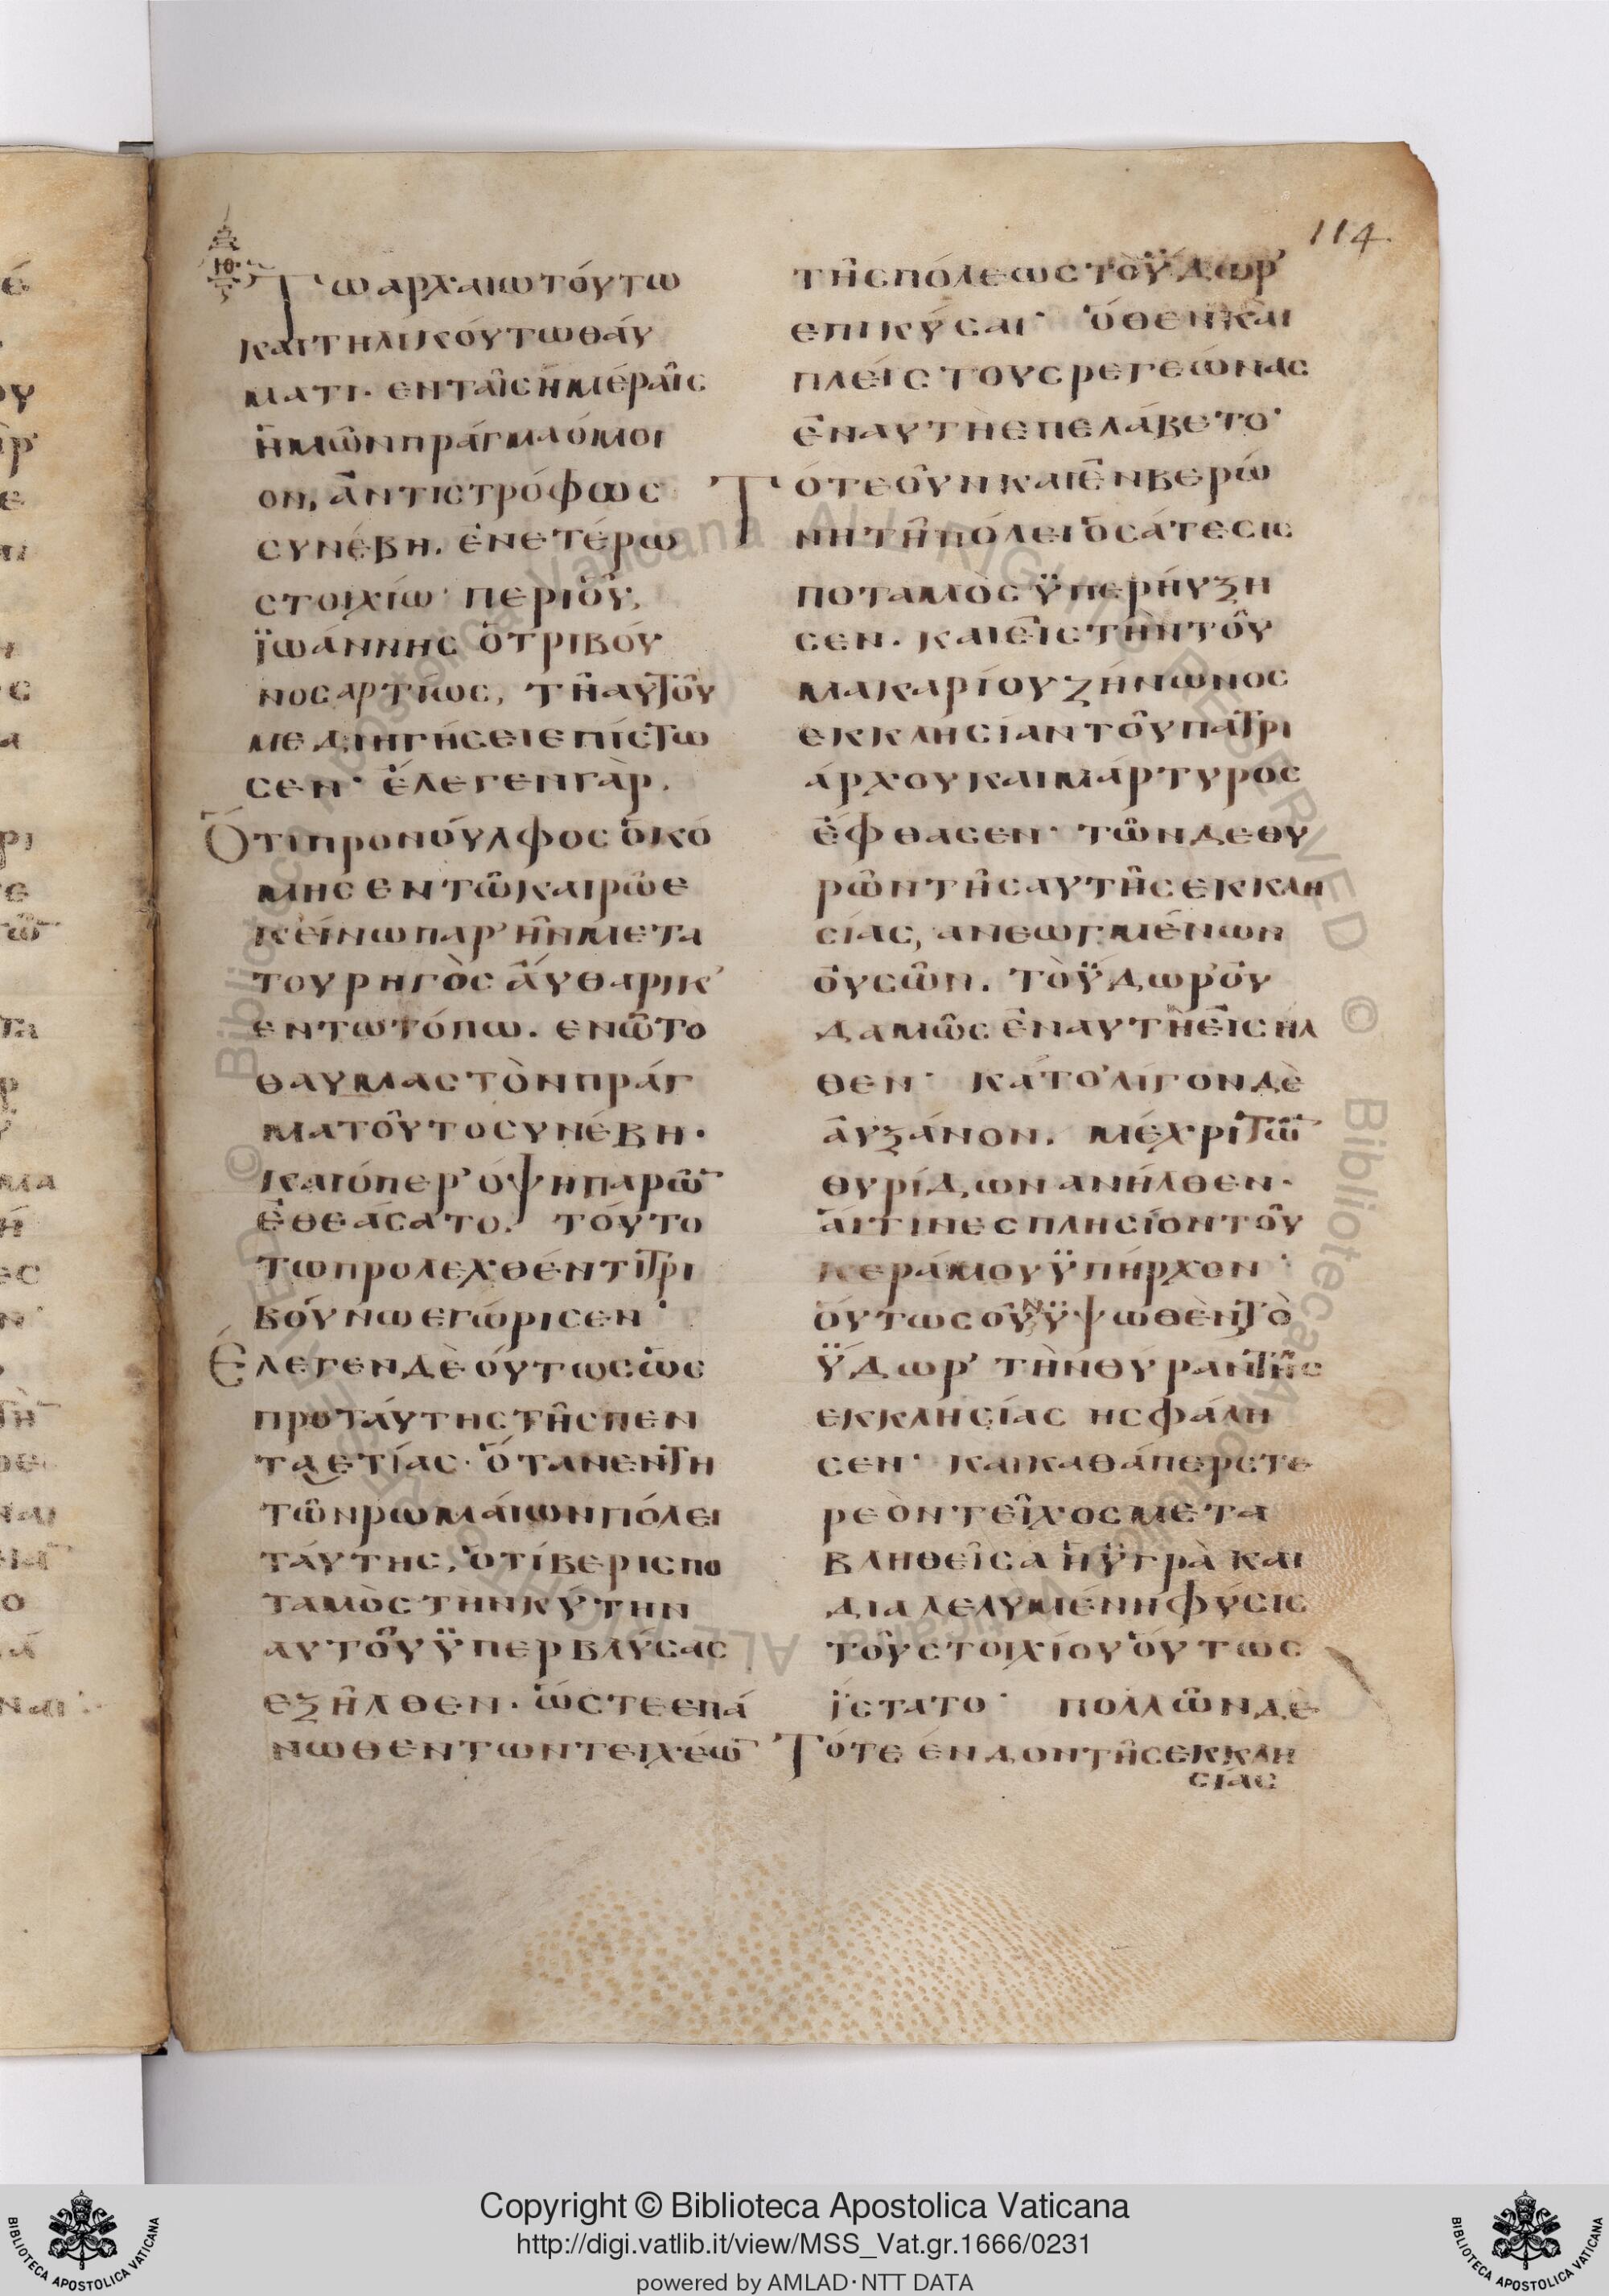 114
ΙΘ
Τῶ ἀρχαίω τούτω
και τηλικούτω θάυ
ματι· εν ταῖς ἡμέραῖς
ἡμῶν πράγμα όμοι
ον, ἀντιστρόφως
συνέβη. ἐν ετέρω
στοιχίω· περι οὗ,
ϊωάννης ὁ τριβού
νος αρτίως, τῆ αυτοῦ
με διηγήσει επίστω
σεν· ἔλεγεν γὰρ.
Ὅτι προνούλφος ὁ κό
μης εν τῶ καιρῶ ε
κείνω παρ' ῆν μετα
του ρηγὸς ἀυθαρικ'
εν τω τόπω. εν ῶ το
θαυμαστὸν πράγ
μα τοῦτο συνέβη.
και όπερ' όψη παρῶν
ἐθεάσατο. τούτο
τω προλεχθέντι τρι
βούνω εγώρισεν·
Ἔλεγεν δὲ ούτως ὡς
προ ταύτης τῆς πεν
ταετίας· ὅταν εν τη
τῶν ρωμάιων πόλει
ταύτης, ὁ τίβερις πο
ταμὸς τὴν κύτην
αυτοῦ ϋπερβλύσας
εξῆλθεν. ὥστε επά
νωθεν των τειχέων
τῆς πόλεως τὸ ϋδωρ'
επικύσαι· ὅθεν και
πλείστους ρεγεώνας
ἐν αυτὴ επελάβετο·
Τότε οὖν και ἐν βερώ
νη τῆ πόλει ὁ σάτεσις
ποταμὸς ϋπερήυξη
σεν. και εἰς τὴν τοῦ
μακαρίου ζήνωνος
εκκλησίαν τοῦ πατρι
άρχου και μάρτυρος
ἔφθασεν· τῶν δε θυ
ρῶν τῆς αυτῆς εκκλη
σίας, ανεωγμένων
ὀυσῶν. τὸ ϋδωρ' ὀυ
δαμῶς ἐν αυτὴ εἰσήλ
θεν· κατ' ολίγον δὲ
ἀυξάνον. μέχρι τῶν
θυρίδων ανήλθεν.
ἅιτινες πλησίον τοῦ
κεράμου ϋπήρχον·
ὅυτως οὖν ϋψωθὲν τὸ
ϋδωρ' τὴν θύραν τῆς
εκκλησίας ησφάλη
σεν· και καθάπερ στε
ρεὸν τεῖχος μετα
βληθεῖσα ἡ ϋγρὰ και
διαλελυμένη φύσις
τοῦ στοιχίου ὅυτως
ίστατο· πολλῶν δὲ
Τότε ένδον τῆς εκκλη
σίας
Copyright © Biblioteca Apostolica Vaticana
http://digi.vatlib.it/view/MSS_Vat.gr.1666/0231
powered by AMLAD·NTT DATA
BIBLIOTECA APOSTOLICA VATICANA
BIBLIOTECA APOSTOLICA VATICANA